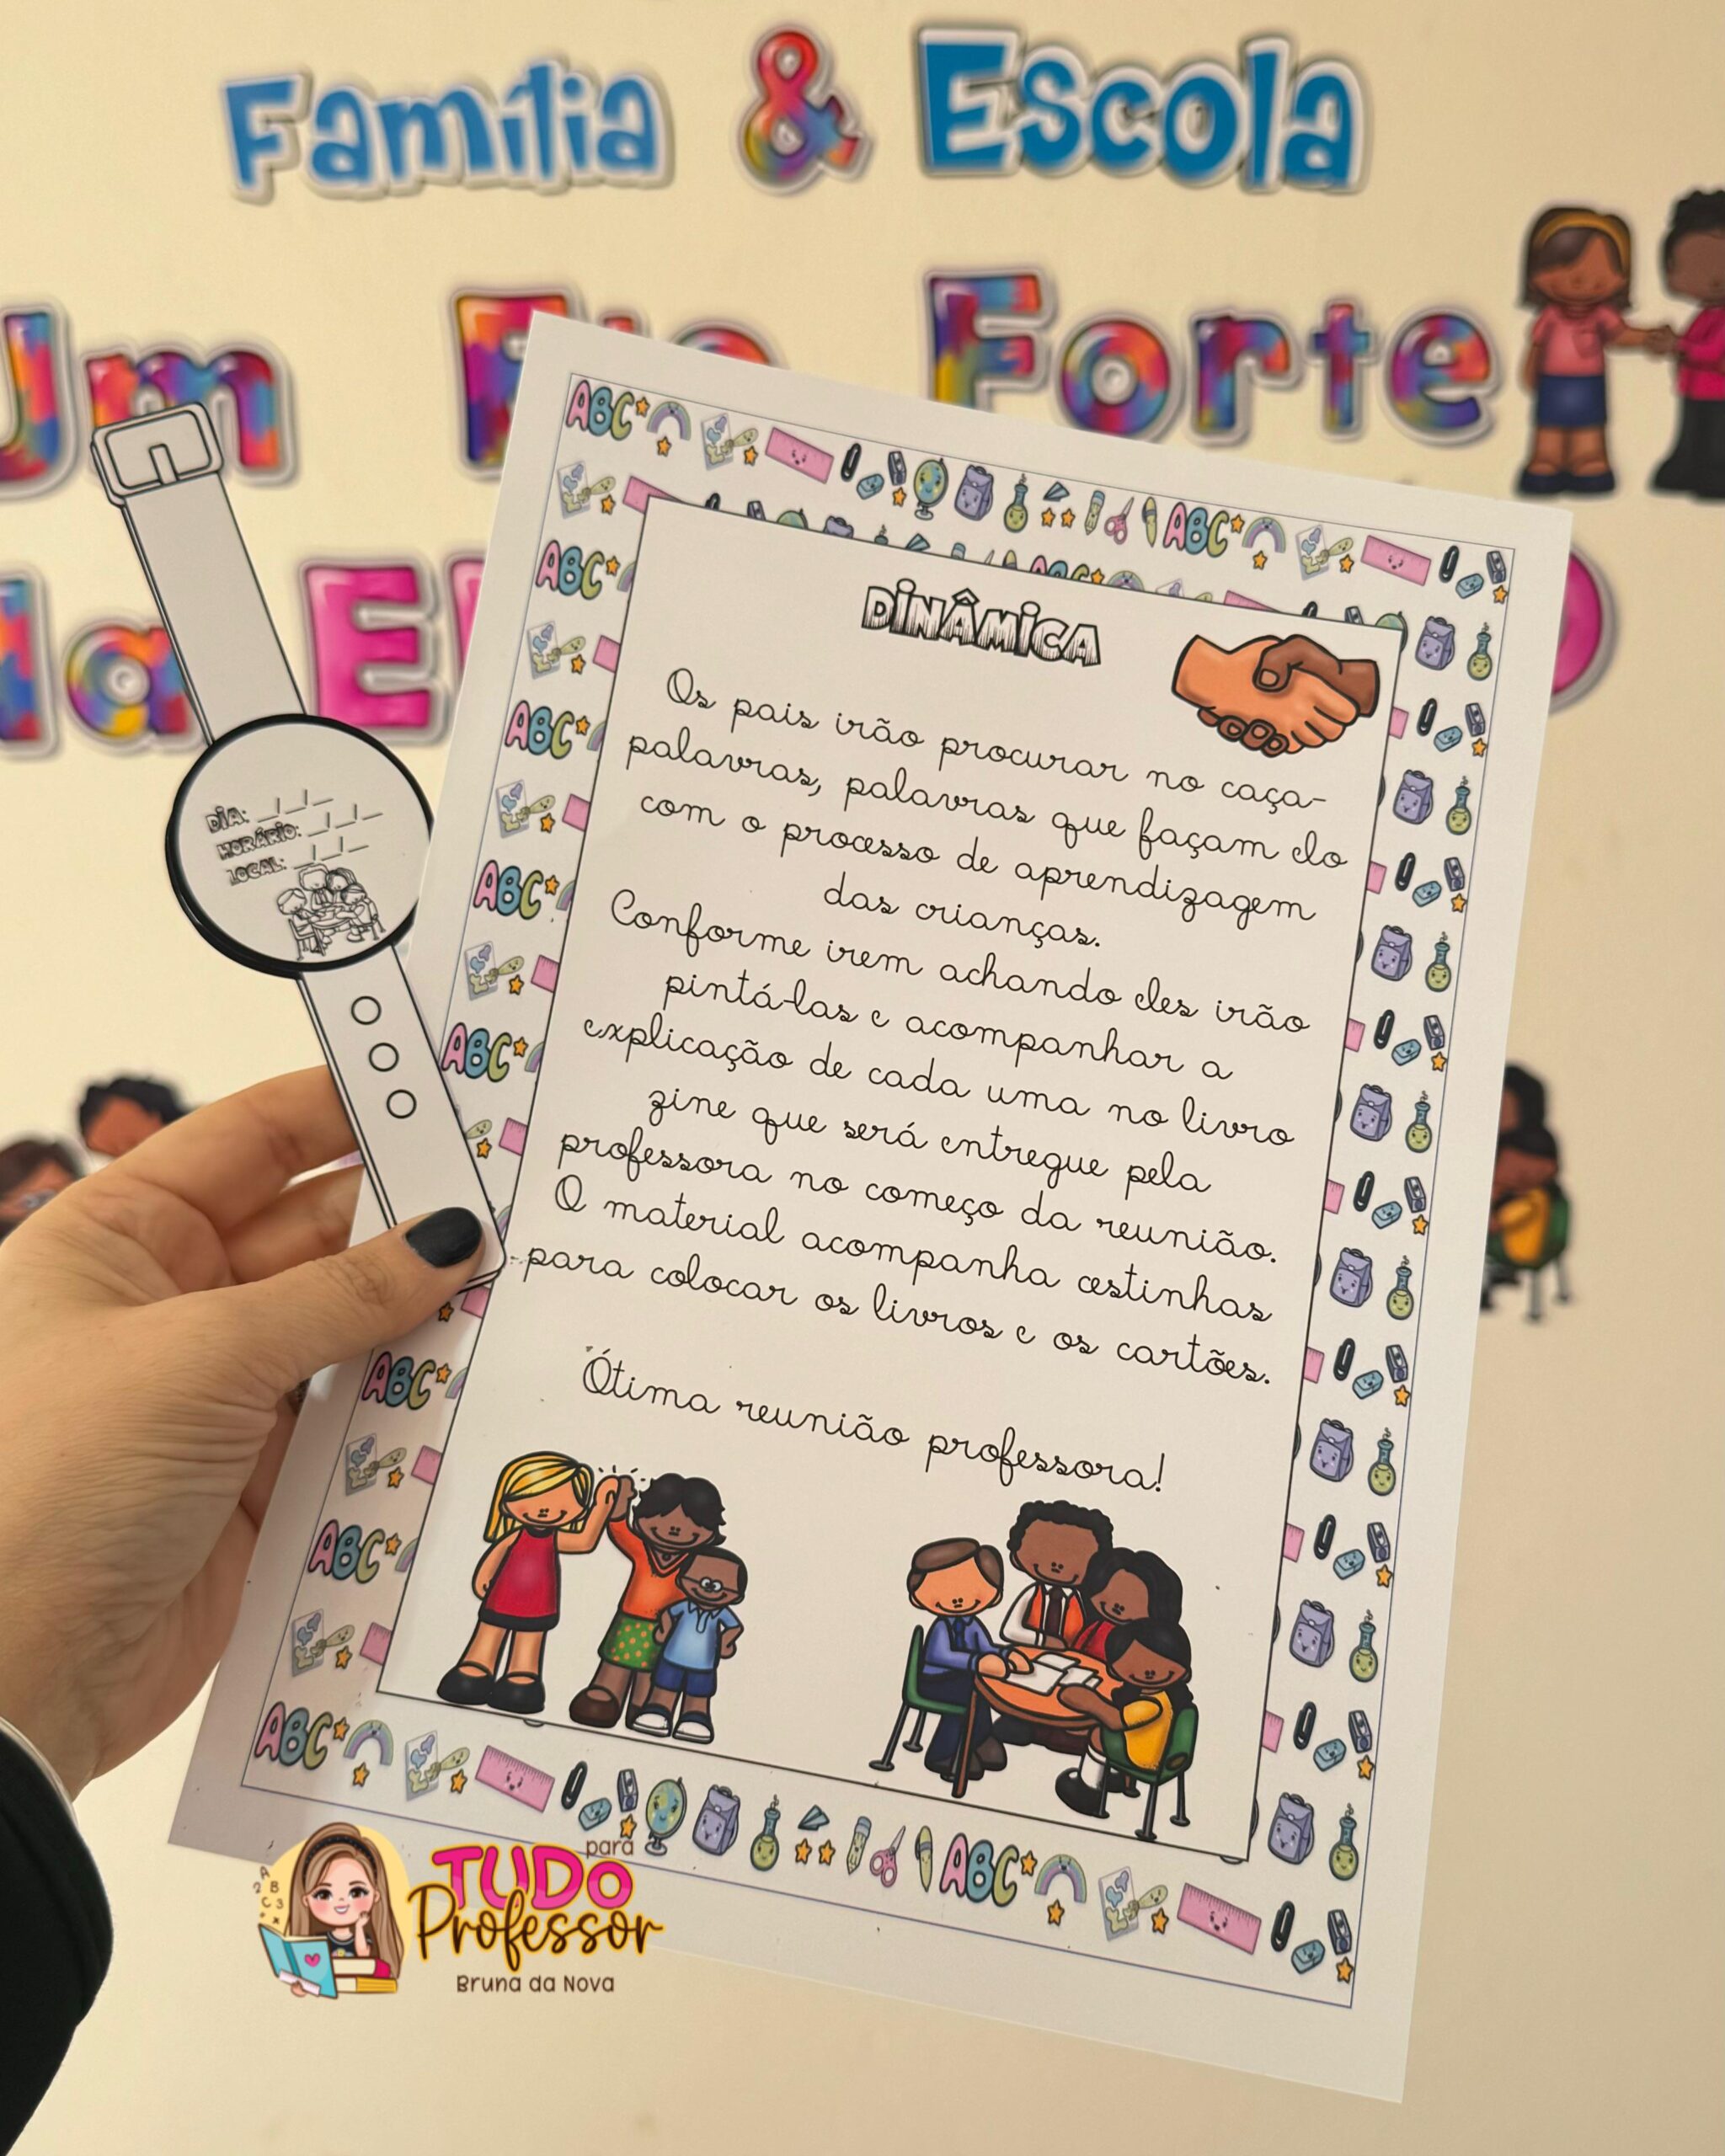 Família & Escola
Um Forte
DINÂMICA
Os pais irão procurar no caça-
palavras, palavras que façam do
com o processo de aprendizagem
das crianças.
Conforme irem achando eles irão
pintá-las e acompanhar a
explicação de cada uma no livro
zine que será entregue pela
professora no começo da reunião.
O material acompanha cestinhas
para colocar os livros e os cartões.
Ótima reunião professora!
DIA: __/__/__
HORÁRIO: __/__/__
LOCAL: __/__/__
TUDO para
Professor
Bruna da Nova